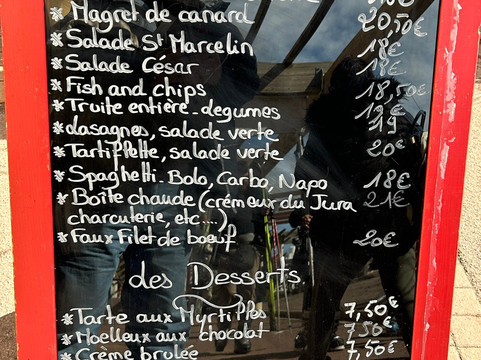 * Magret de canard 20,50€
* Salade St Marcelin 18€
* Salade César 18€
* Fish and chips 18,50€
* Truite entière - legumes 19€
* Lasagnes, salade verte 19
* Tartiflette, salade verte 20€
* Spaghetti. Bolo, Carbo, Napo 18€
* Boîte chaude (crémeux du Jura 21€
charcuterie, etc....)
* Faux Filet de boeuf 20€
des Desserts
* Tarte aux Myrtilles 7,50€
* Moelleux aux chocolat 7,50€
* Crème brulée 7,50€